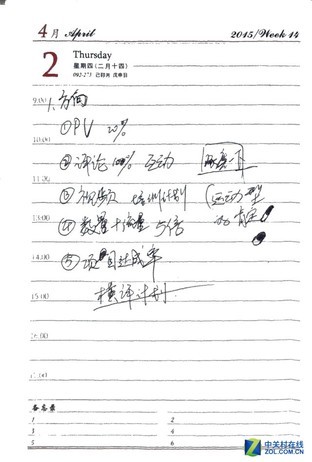 4月 April 2015/Week 14
2 Thursday
星期四(二月十四)
092-273 己卯月 戊申日
9:00 1.方向
①PV 20%
10:00
②评论 100% 互动
11:00
③视频 培训计划 (运动型
13:00
④数量+流量 5倍
14:00
⑤项目达成率
15:00 横评计划
备忘录
1 2
3 4
5 6
中关村在线
ZOL.COM.CN